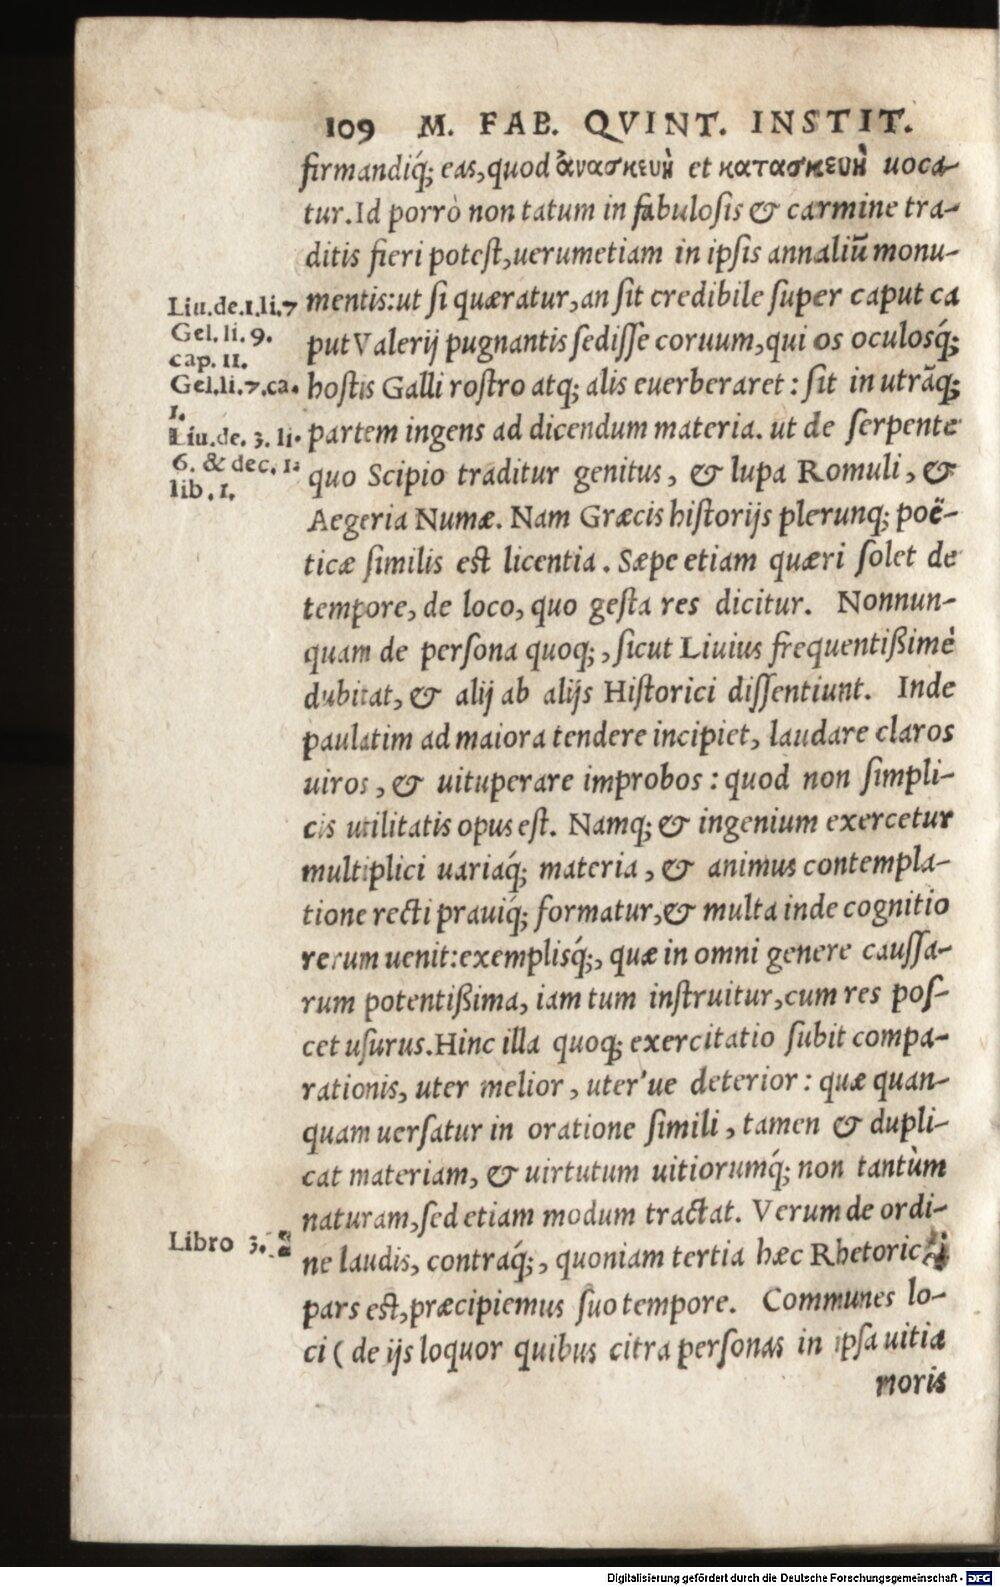 109 M. FAB. QVINT. INSTIT.
firmandiq́; eas, quod ἀνασκευὴ et κατασκευὴ uoca-
tur. Id porrò non tatum in fabulosis & carmine tra-
ditis fieri potest, uerumetiam in ipsis annaliū monu-
mentis: ut si quæratur, an sit credibile super caput ca
put Valerij pugnantis sedisse coruum, qui os oculosq́;
hostis Galli rostro atq; alis euerberaret : sit in utrāq;
partem ingens ad dicendum materia. ut de serpente
quo Scipio traditur genitus, & lupa Romuli, &
Aegeria Numæ. Nam Græcis historijs plerunq; poë-
ticæ similis est licentia. Sæpe etiam quæri solet de
tempore, de loco, quo gesta res dicitur. Nonnun-
quam de persona quoq;, sicut Liuius frequentißimè
dubitat, & alij ab alijs Historici dissentiunt. Inde
paulatim ad maiora tendere incipiet, laudare claros
uiros, & uituperare improbos : quod non simpli-
cis utilitatis opus est. Namq; & ingenium exercetur
multiplici uariaq́; materia, & animus contempla-
tione recti prauiq́; formatur, & multa inde cognitio
rerum uenit: exemplisq́;, quæ in omni genere caussa-
rum potentißima, iam tum instruitur, cum res pos-
cet usurus. Hinc illa quoq; exercitatio subit compa-
rationis, uter melior, uter'ue deterior : quæ quan-
quam uersatur in oratione simili, tamen & dupli-
cat materiam, & uirtutum uitiorumq́; non tantùm
naturam, sed etiam modum tractat. Verum de ordi-
ne laudis, contraq́;, quoniam tertia hæc Rhetorices
pars est, præcipiemus suo tempore. Communes lo-
ci ( de ijs loquor quibus citra personas in ipsa uitia
moris
Liu.de.1.li.7
Gel. li. 9.
cap. 11.
Gel.li.7.ca.
1.
Liu.de. 3. li.
6. & dec. 1.
lib. 1.
Libro 3.
Digitalisierung gefördert durch die Deutsche Forschungsgemeinschaft - DFG